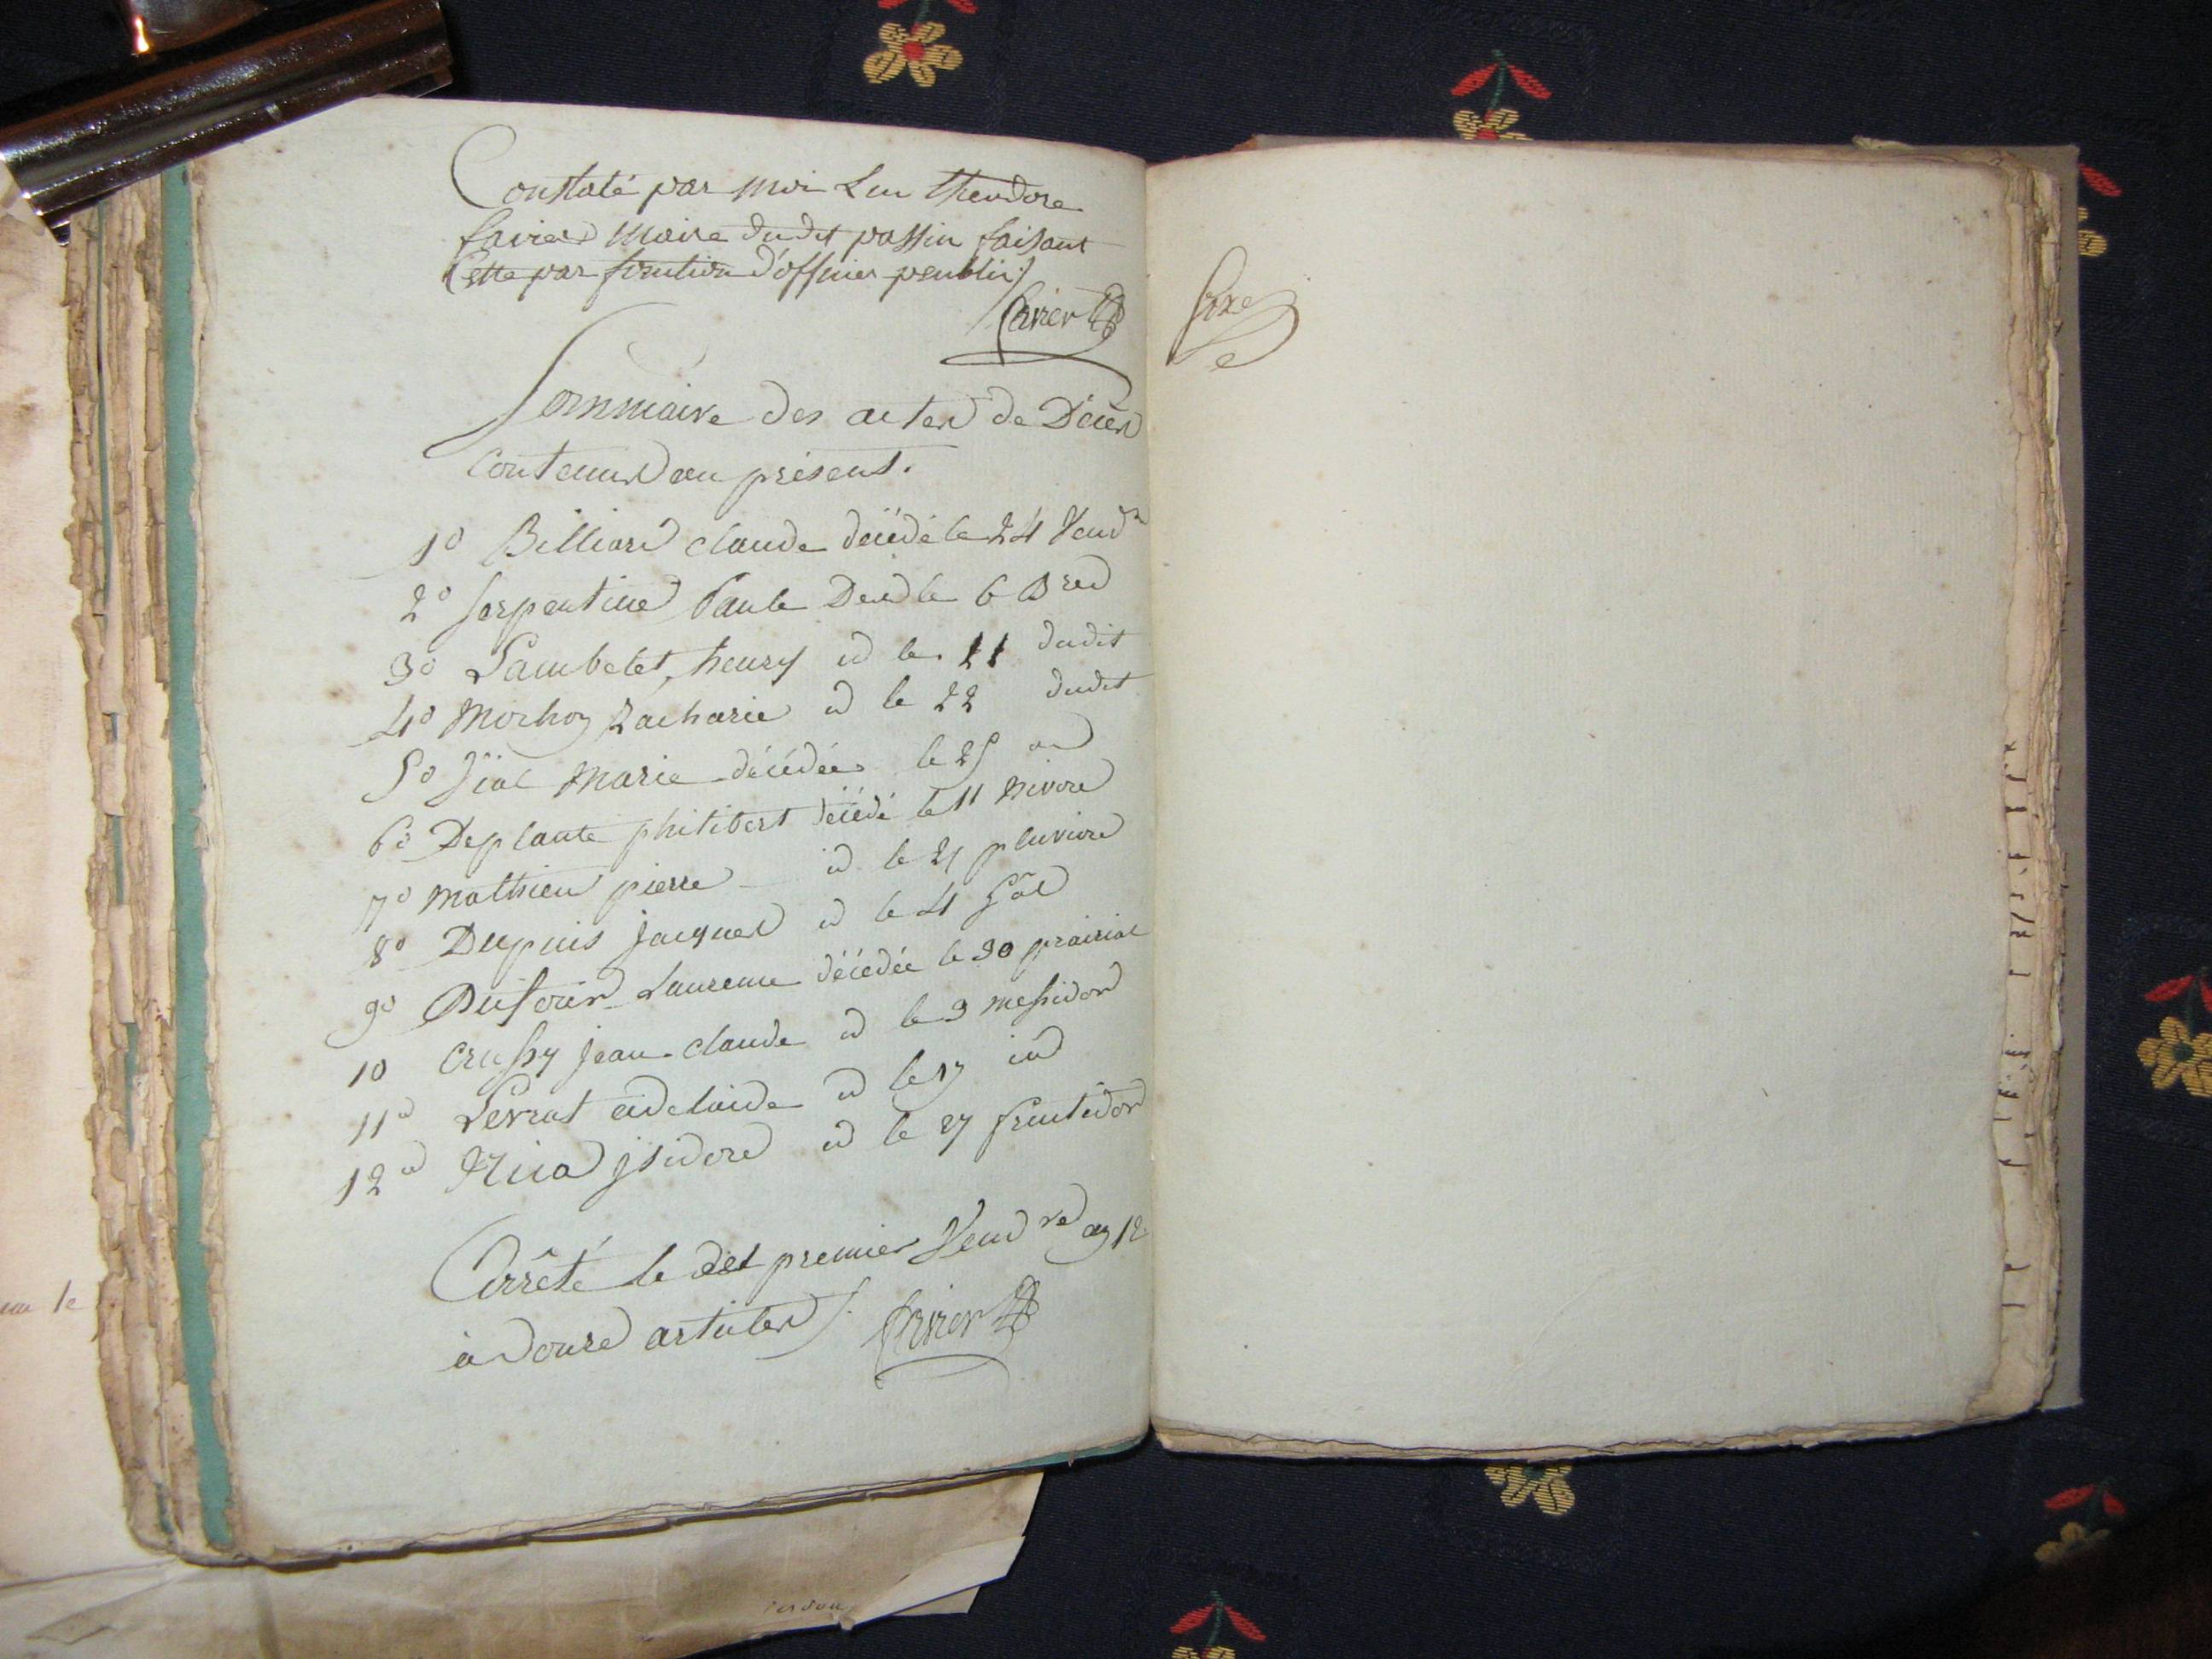 Constaté par moi Luc theodore
favier maire dudit passin faisant
Cette par fonction d'officier peublic
favier
Sommaire des actes de Décès
Contenus au présent.
1° Billiard claude décédé le 24 Vend.
2° Serpentine Paule Déc le 6 Bre
3° Lambelet, henry id le 11 dudit
4° Mochoz Zacharie id le 22 dudit
5° Marie décédée le 25
6° Deplante philibert décédé le 11 nivose
7° Mathieu pierre id le 21 pluviose
8° Dupuis jacques id le 4 Gal
9° Dufour Laurence décédée le 30 prairial
10 Crussy jean-claude id le 9 messidor
11° Perrat adelaide id le 17 id
12° jsidore id le 27 fructidor
Arrêté le dit premier Vendre an 12
à douze articles favier